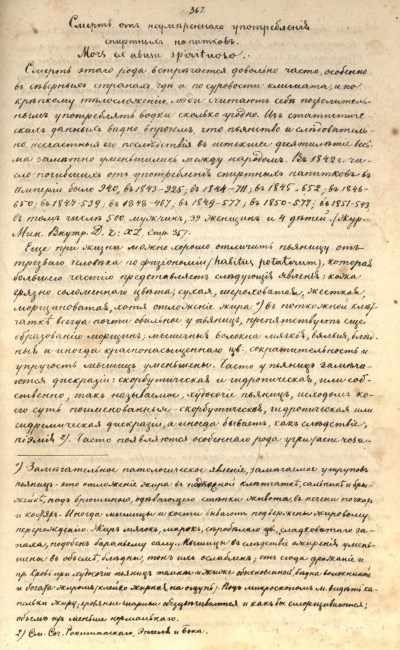 367.
Смерть отъ неумѣреннаго употребленія
спиртныхъ напитковъ.
Mors ex abusu spirituoso.
Смерть этаго рода встрѣчается довольно часто, особенно
въ сѣверныхъ странахъ, гдѣ и по суровости климата, и по
крѣпкому тѣлосложенію, люди считаютъ себѣ позволитель-
нымъ употреблять водки сколько угодно. Изъ статистиче-
скихъ данныхъ видно впрочемъ, что пьянство и слѣдователь-
но, несчастныя его послѣдствія въ истекшее десятилѣтіе весь-
ма замѣтно уменьшились между народомъ. Въ 1842 г. чи-
сло погибшихъ отъ употребленія спиртныхъ напитковъ въ
Имперіи было 940, въ 1843-925; въ 1844-711; въ 1845-652; въ 1846-
650; въ 1847-539; въ 1848-467; въ 1849-577; въ 1850-577; въ 1851-543
въ томъ числѣ 500 мужчинъ, 39 женщинъ и 4 дѣтей. (Жур.
Мин. Внутр. Д. Ч: XL, стр. 357.
Еще при жизни можно хорошо отличить пьяницу отъ
трезваго человѣка по физіономіи (habitus potatorum), которая
большею частію представляетъ слѣдующія явленія: кожа
грязно соломеннаго цвѣта, сухая, шероховатая, жесткая,
морщиноватая, хотя отложеніе жира 1) въ подкожной клѣт-
чаткѣ всегда почти обильное у пьяницъ, препятствуетъ еще
образованію морщинъ; мышечныя волокна мягки, вялы, блѣд-
ны и иногда краснонасыщеннаго цв. сократительность и
упругость мышицъ уменьшены. Часто у пьяницъ замѣча-
ются дискразіи: скорбутическая и гидропическая, или соб-
ственно, такъ называемое, худосочіе пьяницъ, исходомъ ко-
его суть поименованныя - скорбутическая, гидропическая или
гидремическая дискразіи, а иногда бываетъ, какъ слѣдствіе,
піэмія 2). Часто появляются особеннаго рода угри (acne rosa-
1) Замѣчательное патологическое явленіе, замѣчаемое у труповъ
пьяницъ - это отложеніе жира въ подкожной клѣтчаткѣ, сальникѣ и бры-
жейкѣ, подъ брюшиною, одѣвающею стѣнки живота, въ печени почкахъ
Иногда мышицы и кости бываютъ подвержены жировому
перерожденію. Жиръ мягокъ, марокъ, сѣробѣлаго цв., сладковатаго за-
паха, подобенъ бараньему салу. Мышицы въ слѣдствіе ожирѣнія умень-
шены въ объемѣ, блѣдны, тонъ ихъ ослабленъ; отъ сюда дрожаніе и
пр. Кровь при худосочіи пьяницъ темнѣе и жиже обыкновенной, бѣдна волокниной
и богата жиромъ, Подъ микроскопомъ видѣть ка-
пельки жиру, кровяные шарики обезцвѣчиваются и какъ бы сморщиваются;
объемъ ихъ меньше нормальнаго.
2) См. Соч. Рокитанскаго, Энгеля и Бока.